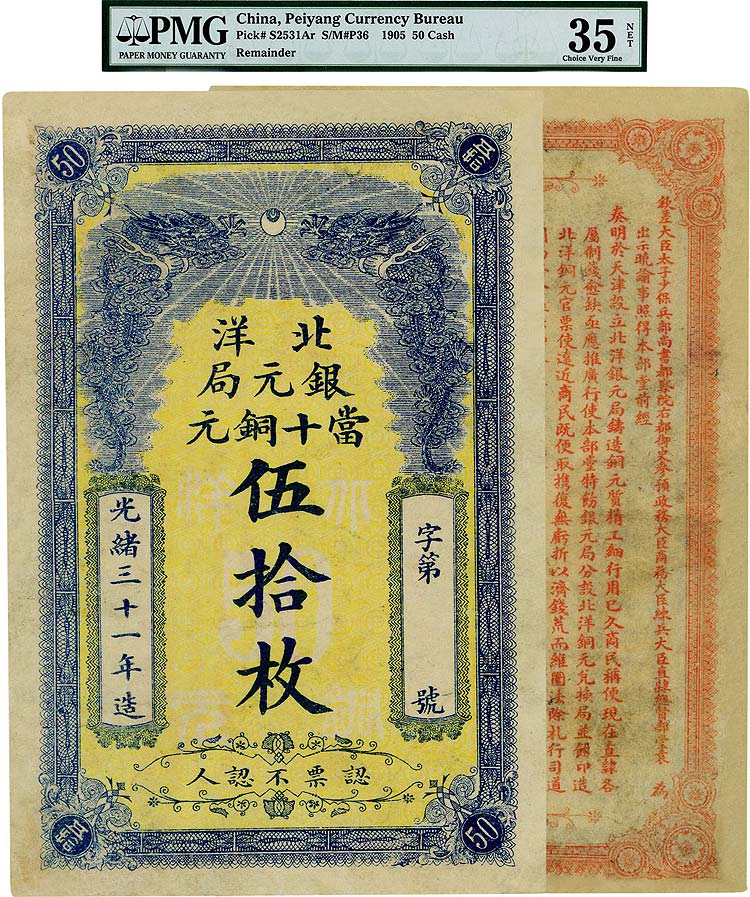 PMG
PAPER MONEY GUARANTY
China, Peiyang Currency Bureau
Pick# S2531Ar S/M#P36 1905 50 Cash
Remainder
35 NET
Choice Very Fine
50
伍拾
北洋
銀元局
當十銅元
伍拾枚
字第 號
光緒三十一年造
認票不認人
伍拾
50
欽差大臣太子少保兵部尚書都察院右都御史參預政務大臣商務大臣練兵大臣直隸總督部堂袁 為
出示曉諭事照得本部堂前經
奏明於天津設立北洋銀元局鑄造銅元質精工細行用已久商民稱便現在直隸各
屬制錢愈缺亟應推廣行使本部堂特飭銀元局分設北洋銅元兌換局並印造
北洋銅元官票使遠近商民既便取攜復無虧折以濟錢荒而維圜法除札行司道